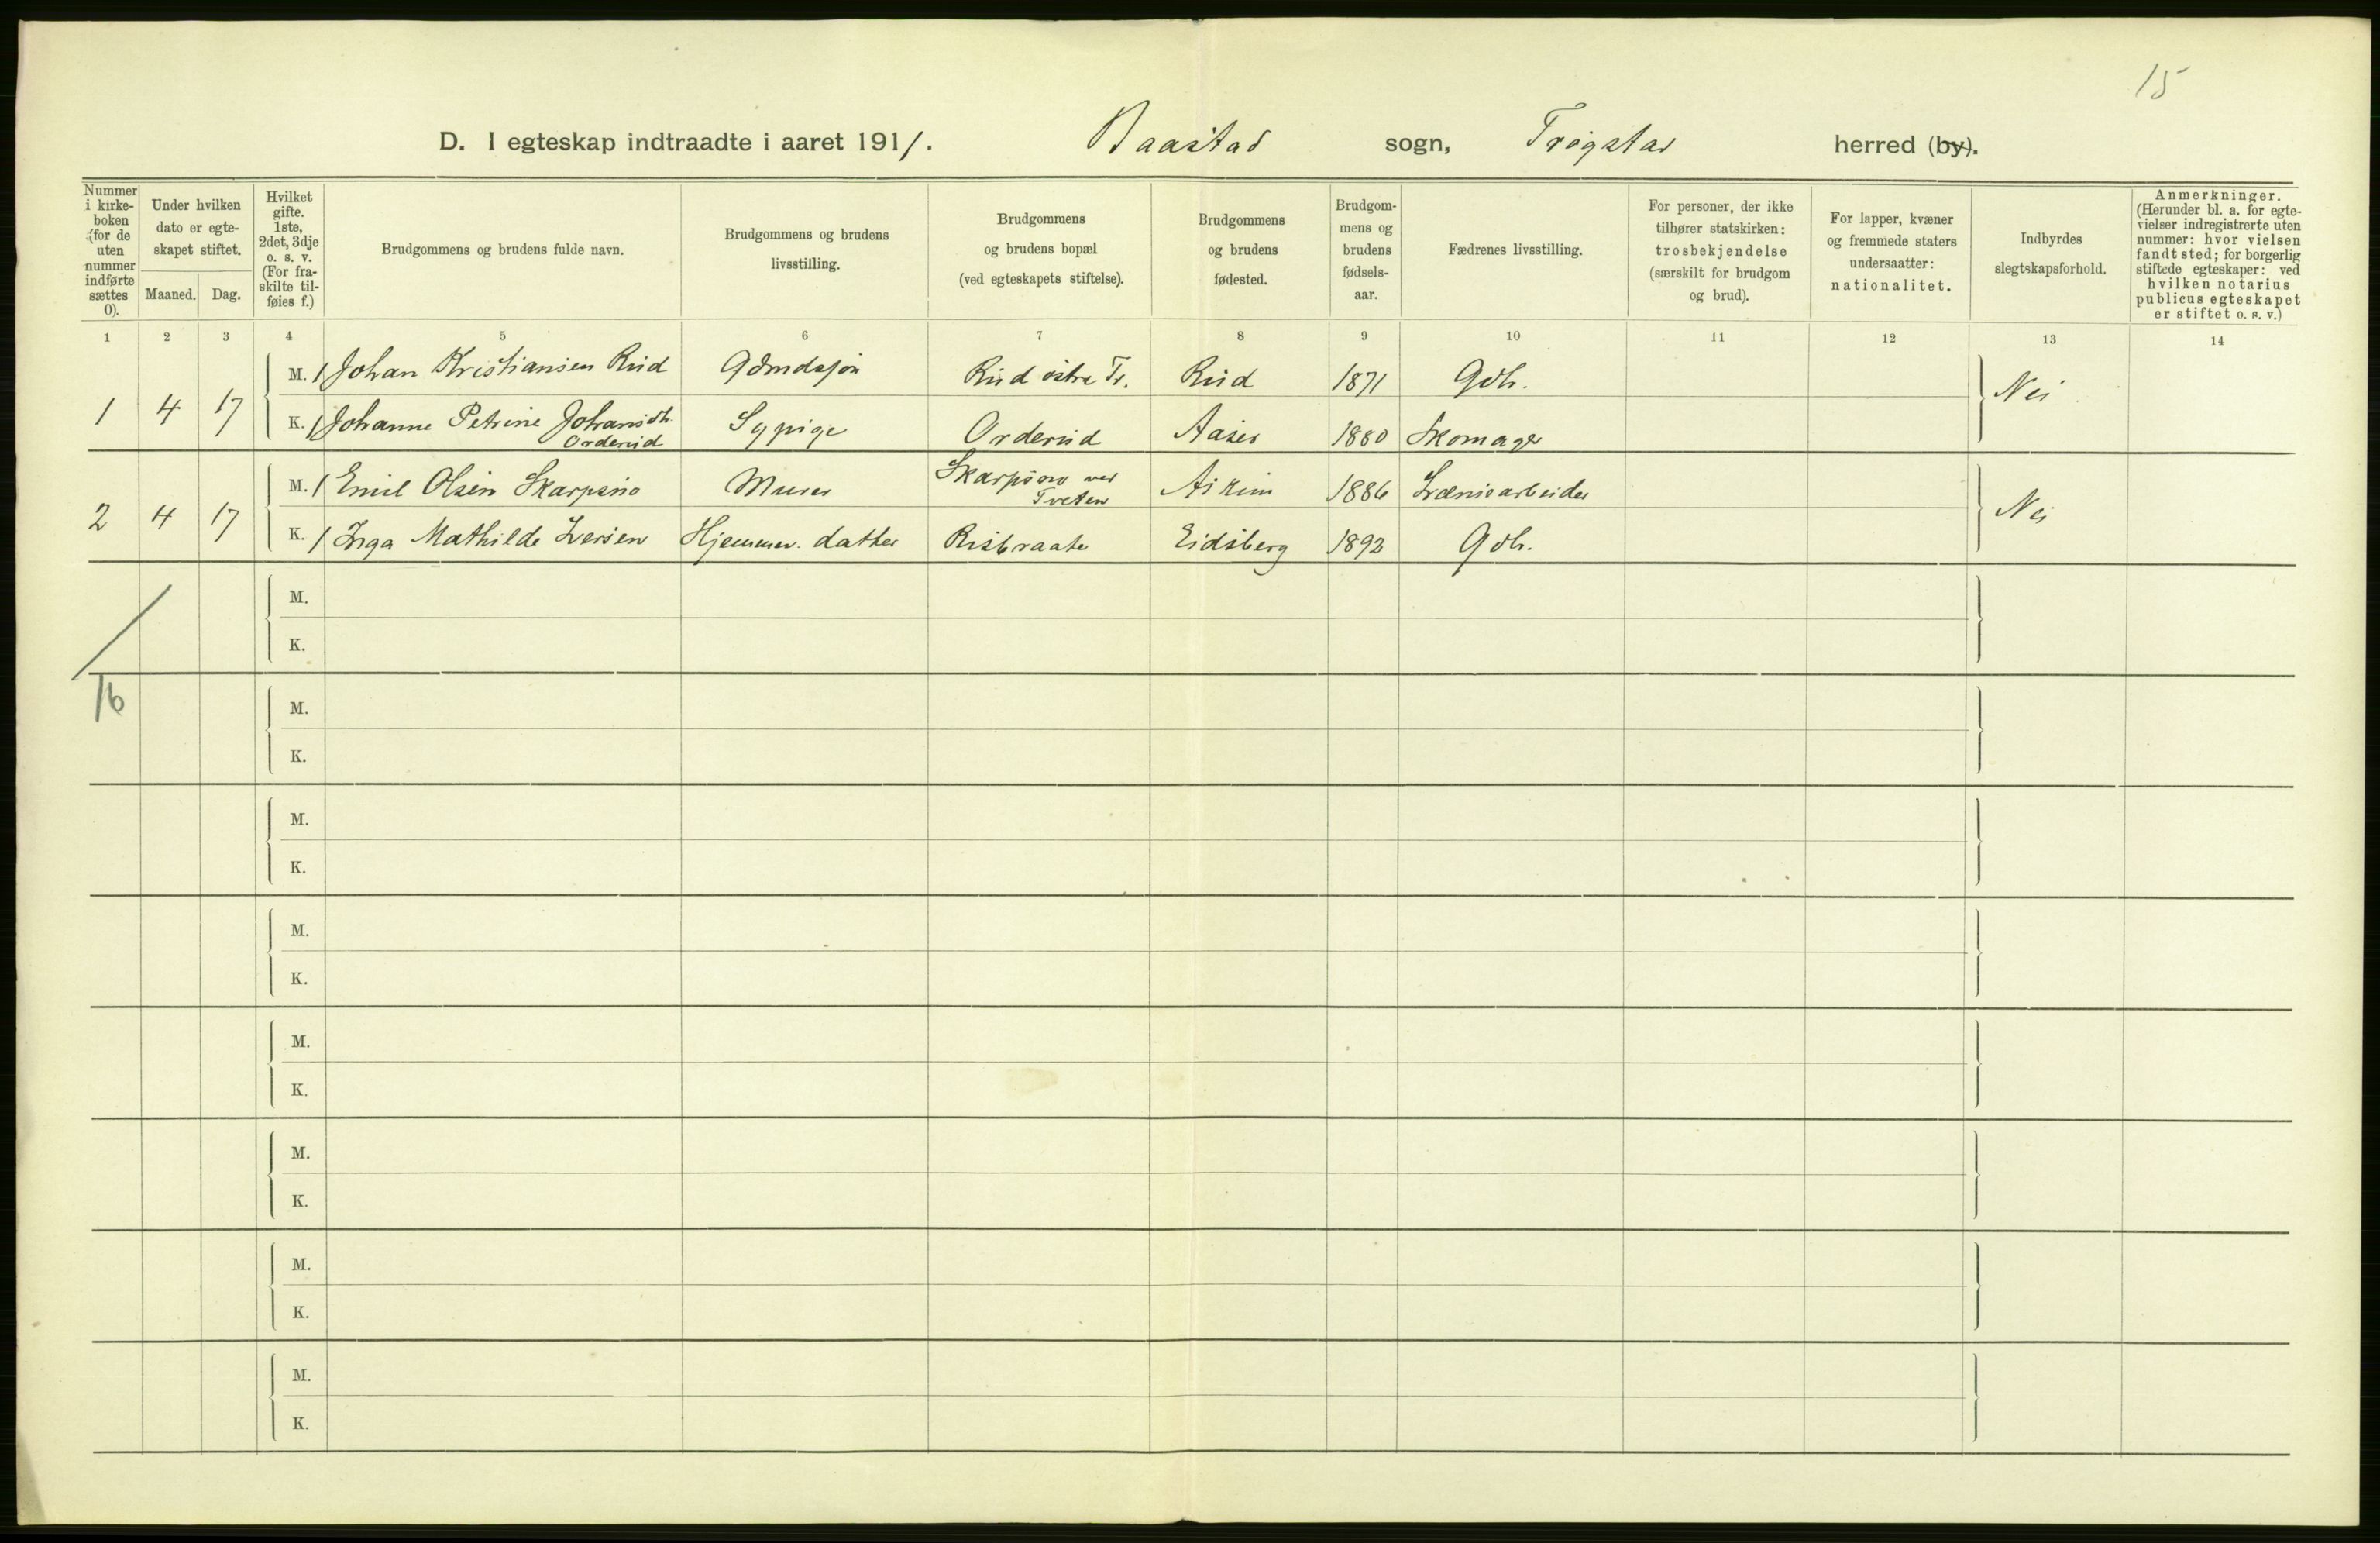 15
D. I egteskap indtraadte i aaret 1911. Baastad sogn, Trøgstad herred (by).
Nummer i kirke-boken (for de uten nummer indførte sættes 0).
Under hvilken dato er egte-skapet stiftet.
Maaned. Dag.
Hvilket gifte. 1ste, 2det, 3dje o. s. v. (For fra-skilte til-føies f.)
Brudgommens og brudens fulde navn.
Brudgommens og brudens livsstilling.
Brudgommens og brudens bopæl (ved egteskapets stiftelse).
Brudgommens og brudens fødested.
Brudgom-mens og brudens fødsels-aar.
Fædrenes livsstilling.
For personer, der ikke tilhører statskirken: trosbekjendelse (særskilt for brudgom og brud).
For lapper, kvæner og fremmede staters undersaatter: nationalitet.
Indbyrdes slegtskapsforhold.
Anmerkninger. (Herunder bl. a. for egte-vielser indregistrerte uten nummer: hvor vielsen fandt sted; for borgerlig stiftede egteskaper: ved hvilken notarius publicus egteskapet er stiftet o. s. v.)
1 2 3 4 5 6 7 8 9 10 11 12 13 14
M. 1 Johan Kristiansen Rud Gdmdsjøn Rud østre Tr. Rud 1871 Gdb.
1 4 17 Nei
K. 1 Johanne Petrine Johansdtr. Orderud Sypige Orderud Aaser 1880 Skomager
M. 1 Emil Olsen Skarpsno Murer Skarpsno ved Tveten Askim 1886 Lænsearbeider
2 4 17 Nei
K. 1 Inga Mathilde Iversen Hjemmev. datter Risbraate Eidsberg 1892 Gdb.
M.
K.
16
M.
K.
M.
K.
M.
K.
M.
K.
M.
K.
M.
K.
M.
K.